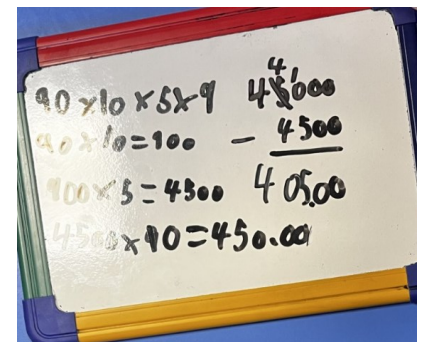 90 x 10 x 5 x 9
90 x 10 = 900
900 x 5 = 4500
4500 x 90 = 450.00
4 1
45000
- 4500
40500